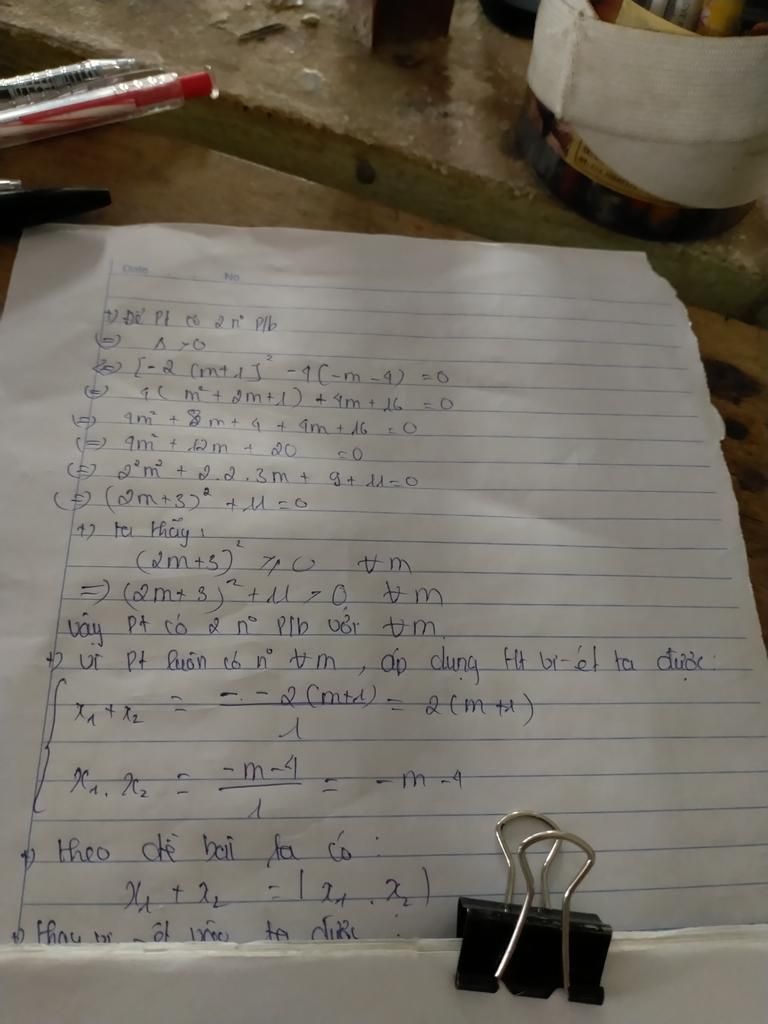 Date No
+) Để Pt có 2 n° P/b
(=) Δ > 0
(=) [-2(m+1)]² - 4(-m-4) = 0
(=) 4(m² + 2m+1) + 4m + 16 = 0
(=) 4m² + 8m + 4 + 4m + 16 = 0
(=) 4m² + 12m + 20 = 0
(=) 2²m² + 2.2.3m + 9 + 11 = 0
(=) (2m+3)² + 11 = 0
+) ta thấy:
(2m+3)² ≥ 0 ∀m
=) (2m+3)² + 11 > 0 ∀m
vậy Pt có 2 n° P/b với ∀m.
+) vì Pt luôn có n° ∀m, áp dụng Ht vi-ét ta được:
x₁ + x₂ = - -2(m+1) / 1 = 2(m+1)
x₁ . x₂ = -m-4 / 1 = -m-4
+) theo đề bài ta có:
x₁ + x₂ = | x₁ . x₂ |
+) thay vi-ét vào ta được: